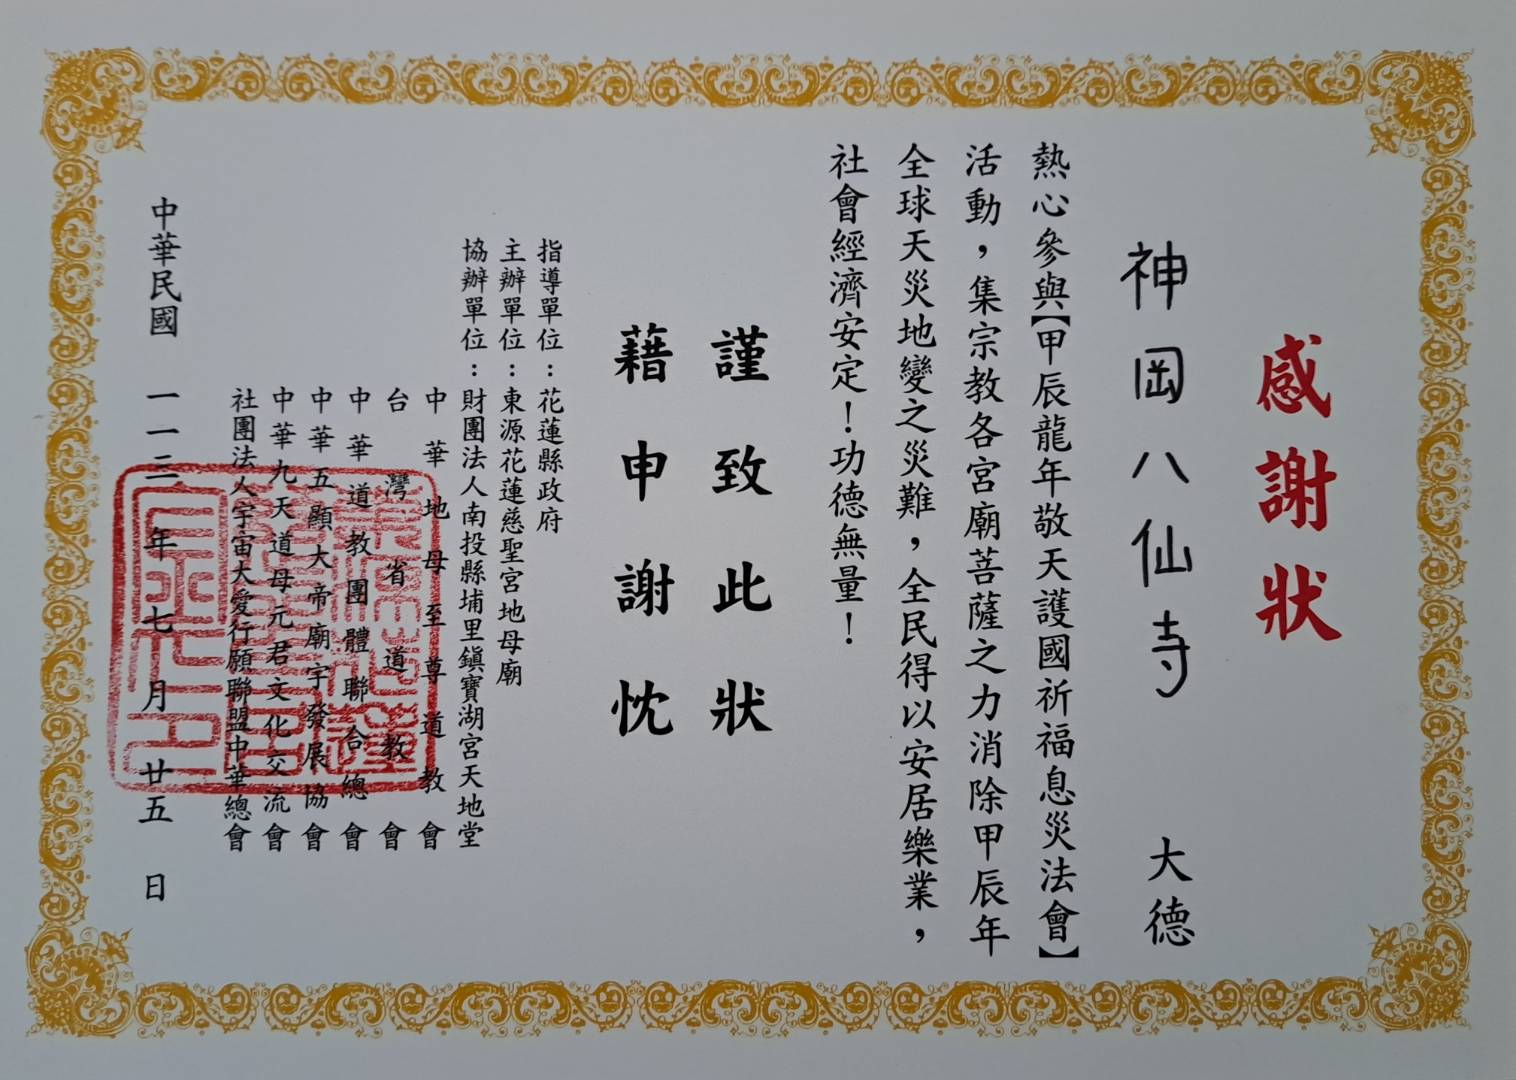 感謝狀
神岡八仙寺 大德
熱心參與【甲辰龍年敬天護國祈福息災法會】
活動，集宗教各宮廟菩薩之力消除甲辰年
全球天災地變之災難，全民得以安居樂業，
社會經濟安定！功德無量！
謹致此狀
藉申謝忱
指導單位：花蓮縣政府
主辦單位：東源花蓮慈聖宮地母廟
協辦單位：財團法人南投縣埔里鎮寶湖宮天地堂
中華地母至尊道教會
台灣省道教會
中華道教團體聯合總會
中華五顯大帝廟宇發展協會
中華九天道母元君文化交流會
社團法人宇宙大愛行願聯盟中華總會
中華民國 一一三年 七月 廿五日